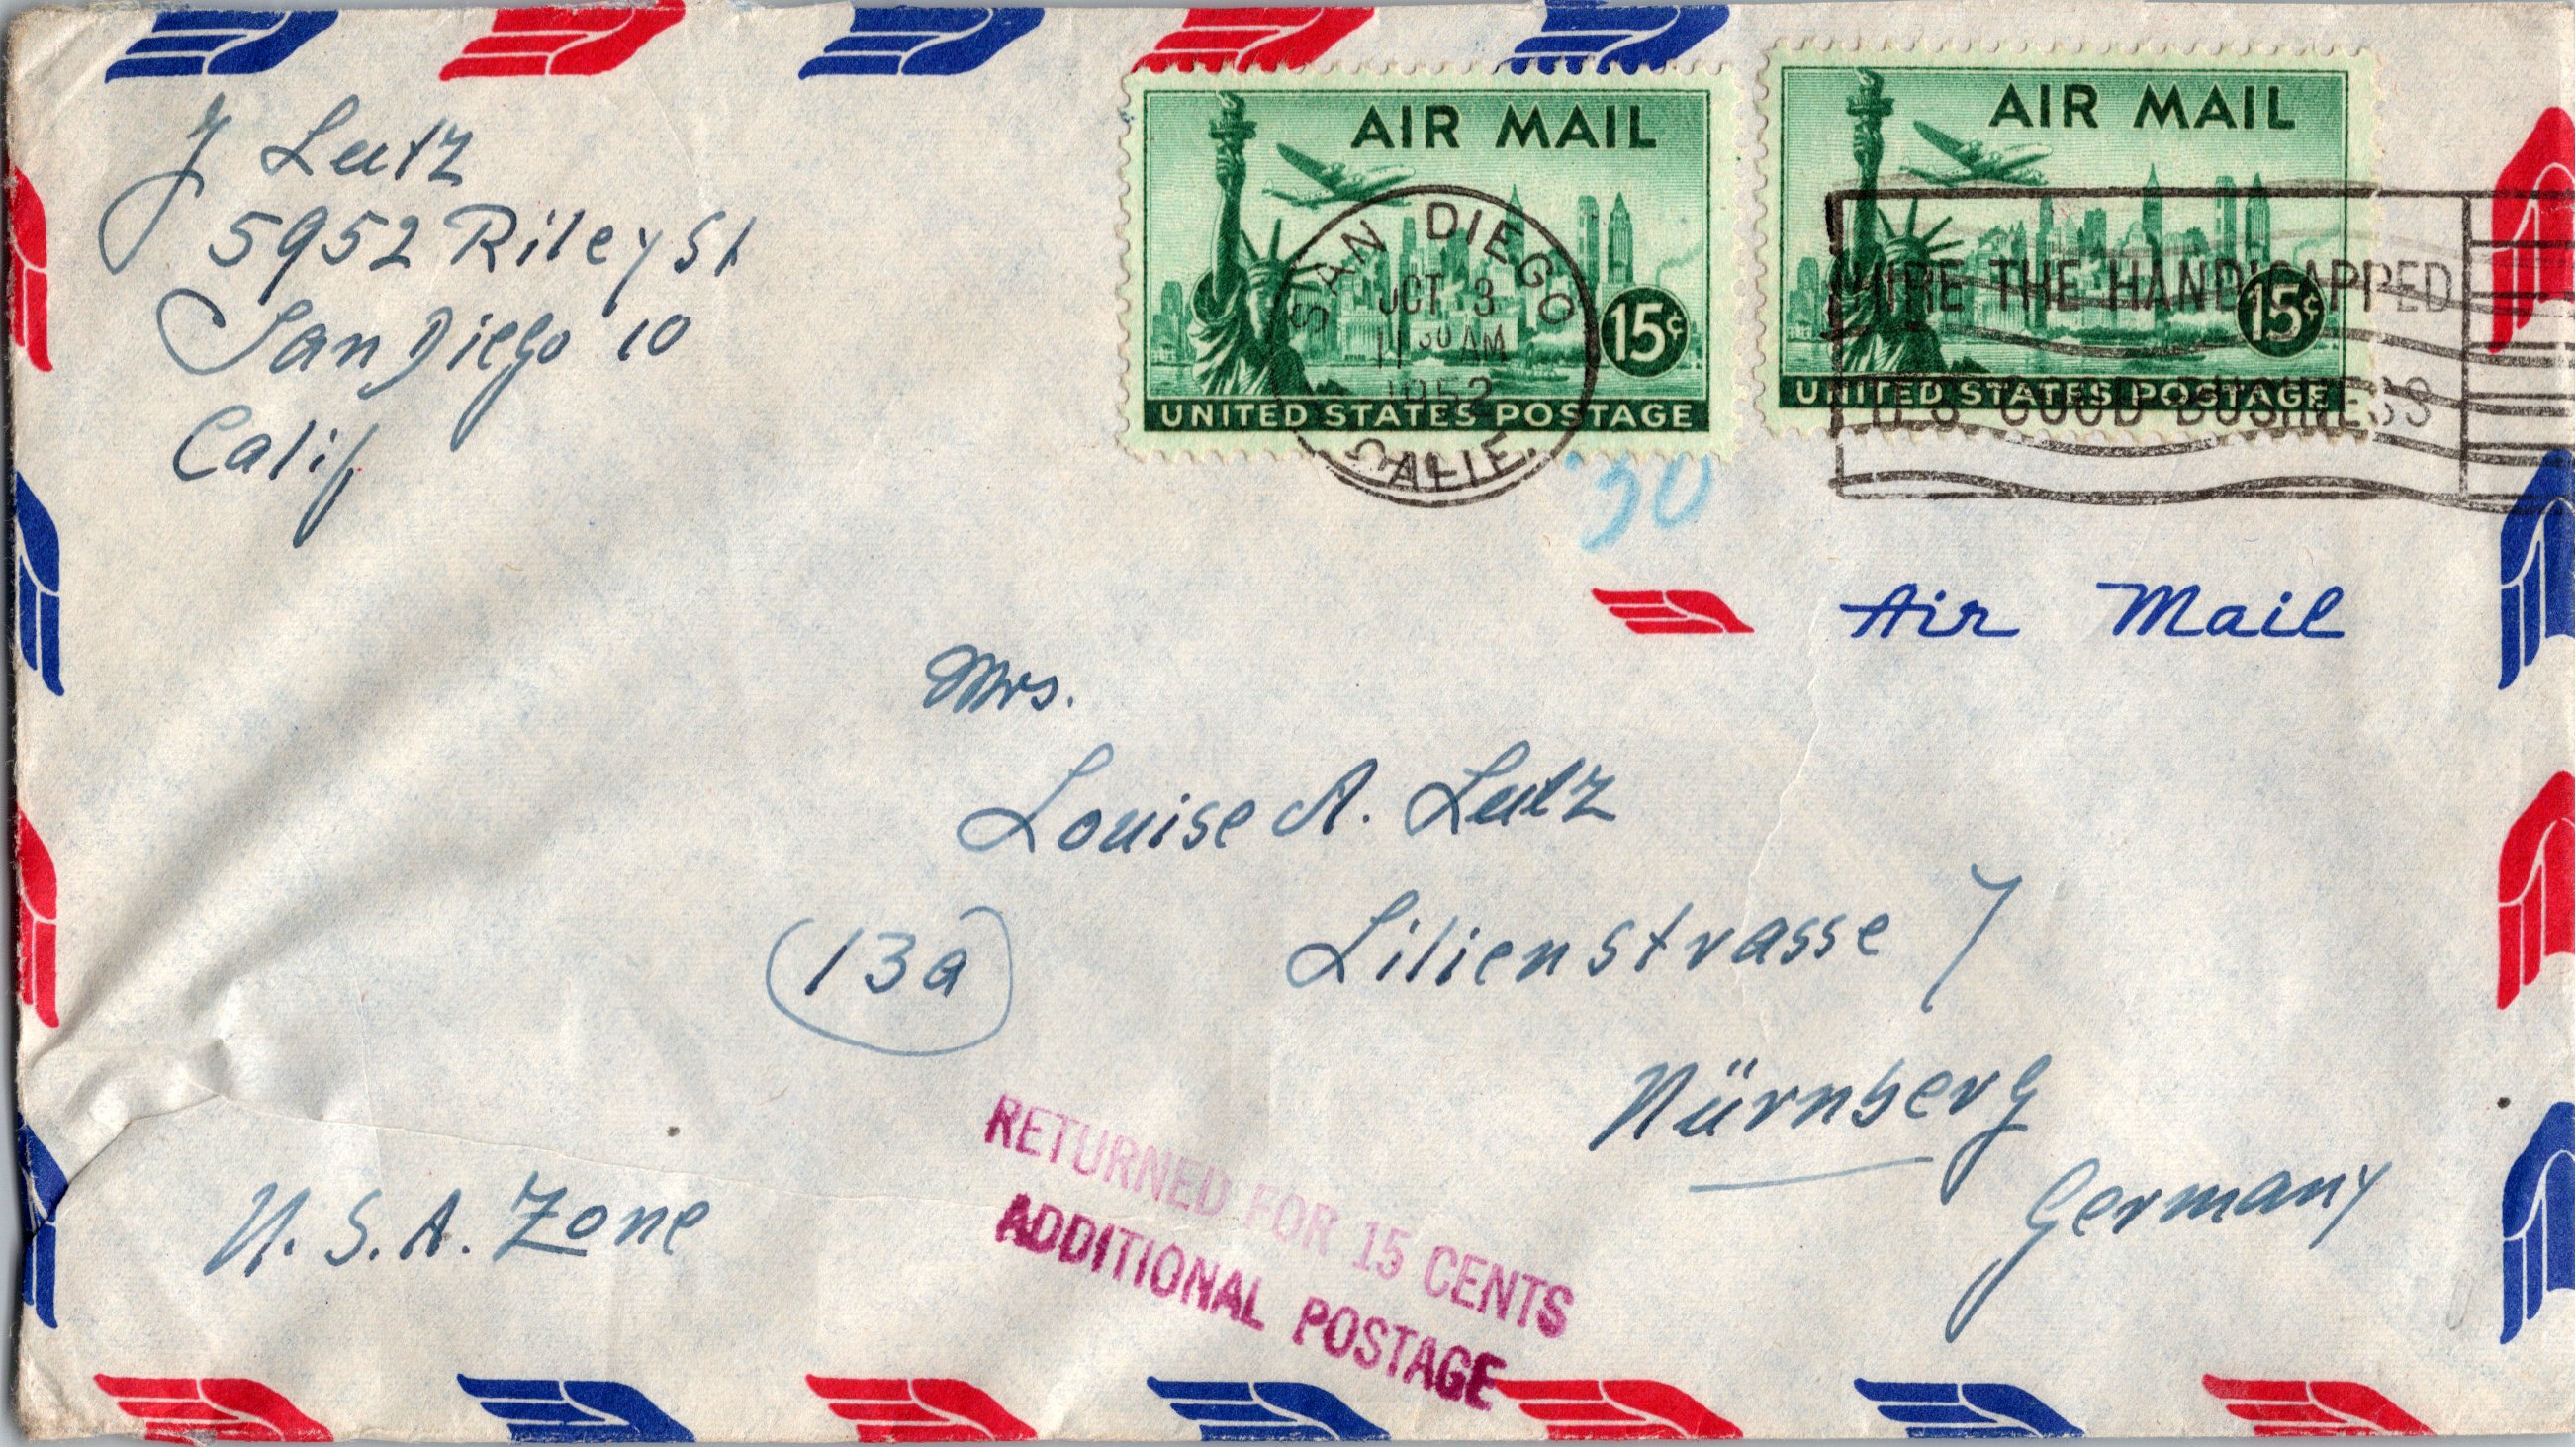 J Lutz
5952 Riley St
San Diego 10
Calif
AIR MAIL
15¢
UNITED STATES POSTAGE
AIR MAIL
15¢
UNITED STATES POSTAGE
SAN DIEGO
OCT 3
11 30 AM
1952
CALIF.
HIRE THE HANDICAPPED
IT'S GOOD BUSINESS
30
Air Mail
Mrs.
Louise A. Lutz
Lilienstrasse 7
(13a)
Nürnberg
Germany
U.S.A. Zone
RETURNED FOR 15 CENTS
ADDITIONAL POSTAGE